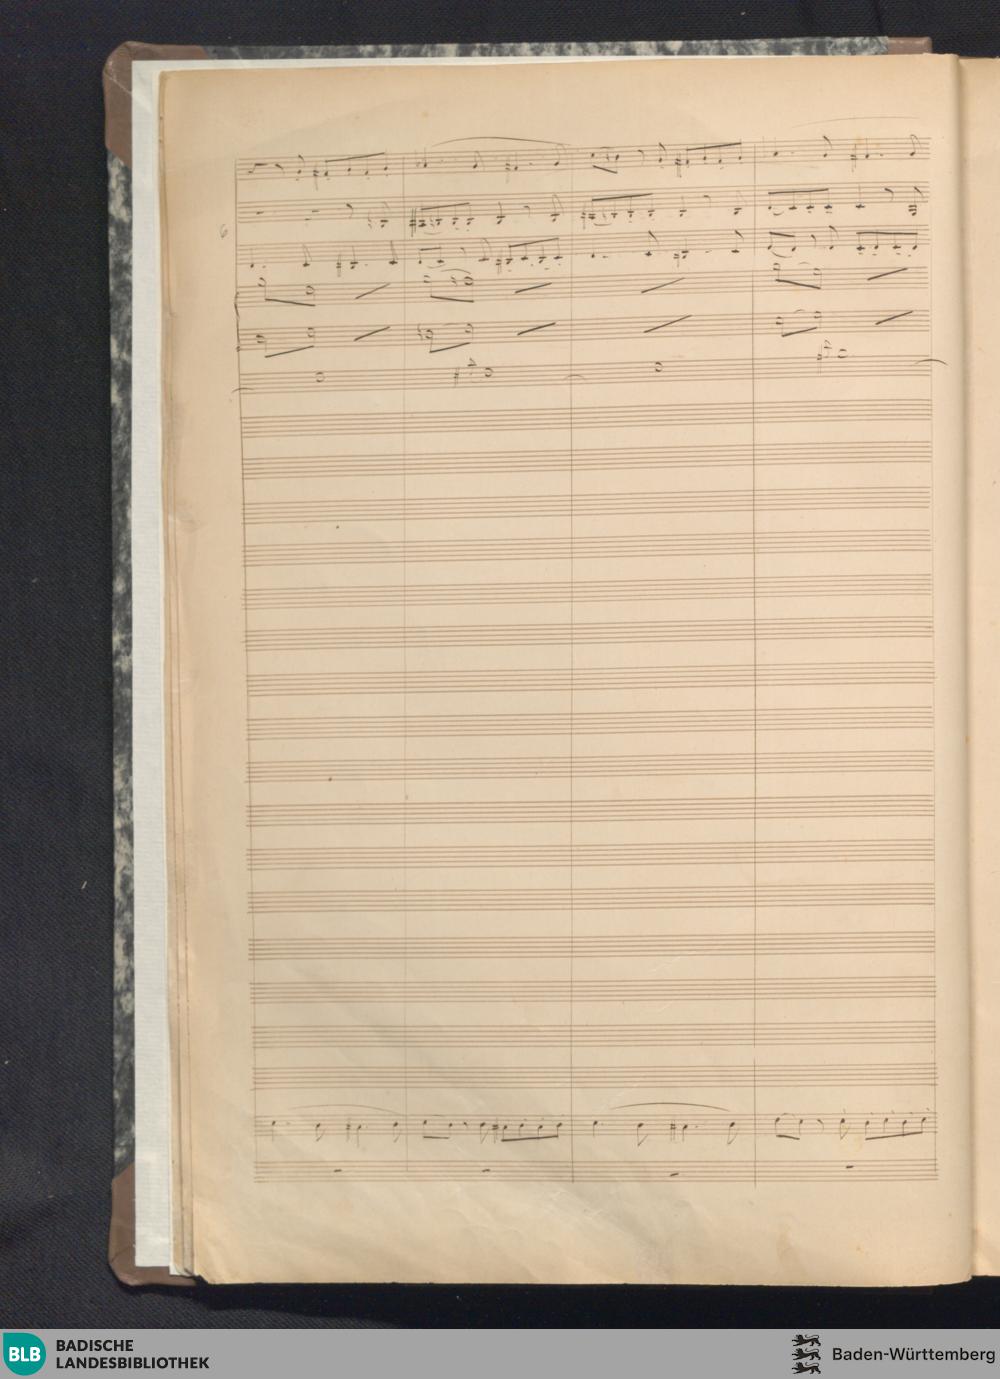 6
BLB
BADISCHE
LANDESBIBLIOTHEK
Baden-Württemberg